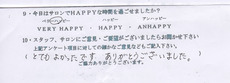 9・今日はサロンでHAPPYな時間を過ごせましたか？
ベリーハッピー　ハッピー　アンハッピー
VERY HAPPY ・ HAPPY ・ ANHAPPY
10・スタッフ、サロンにご意見・ご要望がございましたらお聞かせ下さい
上記アンケート項目に対しての細かなご意見などもご記入下さい。
(とてもよかったです ありがとうございました。)
ご協力ありがとうございます。